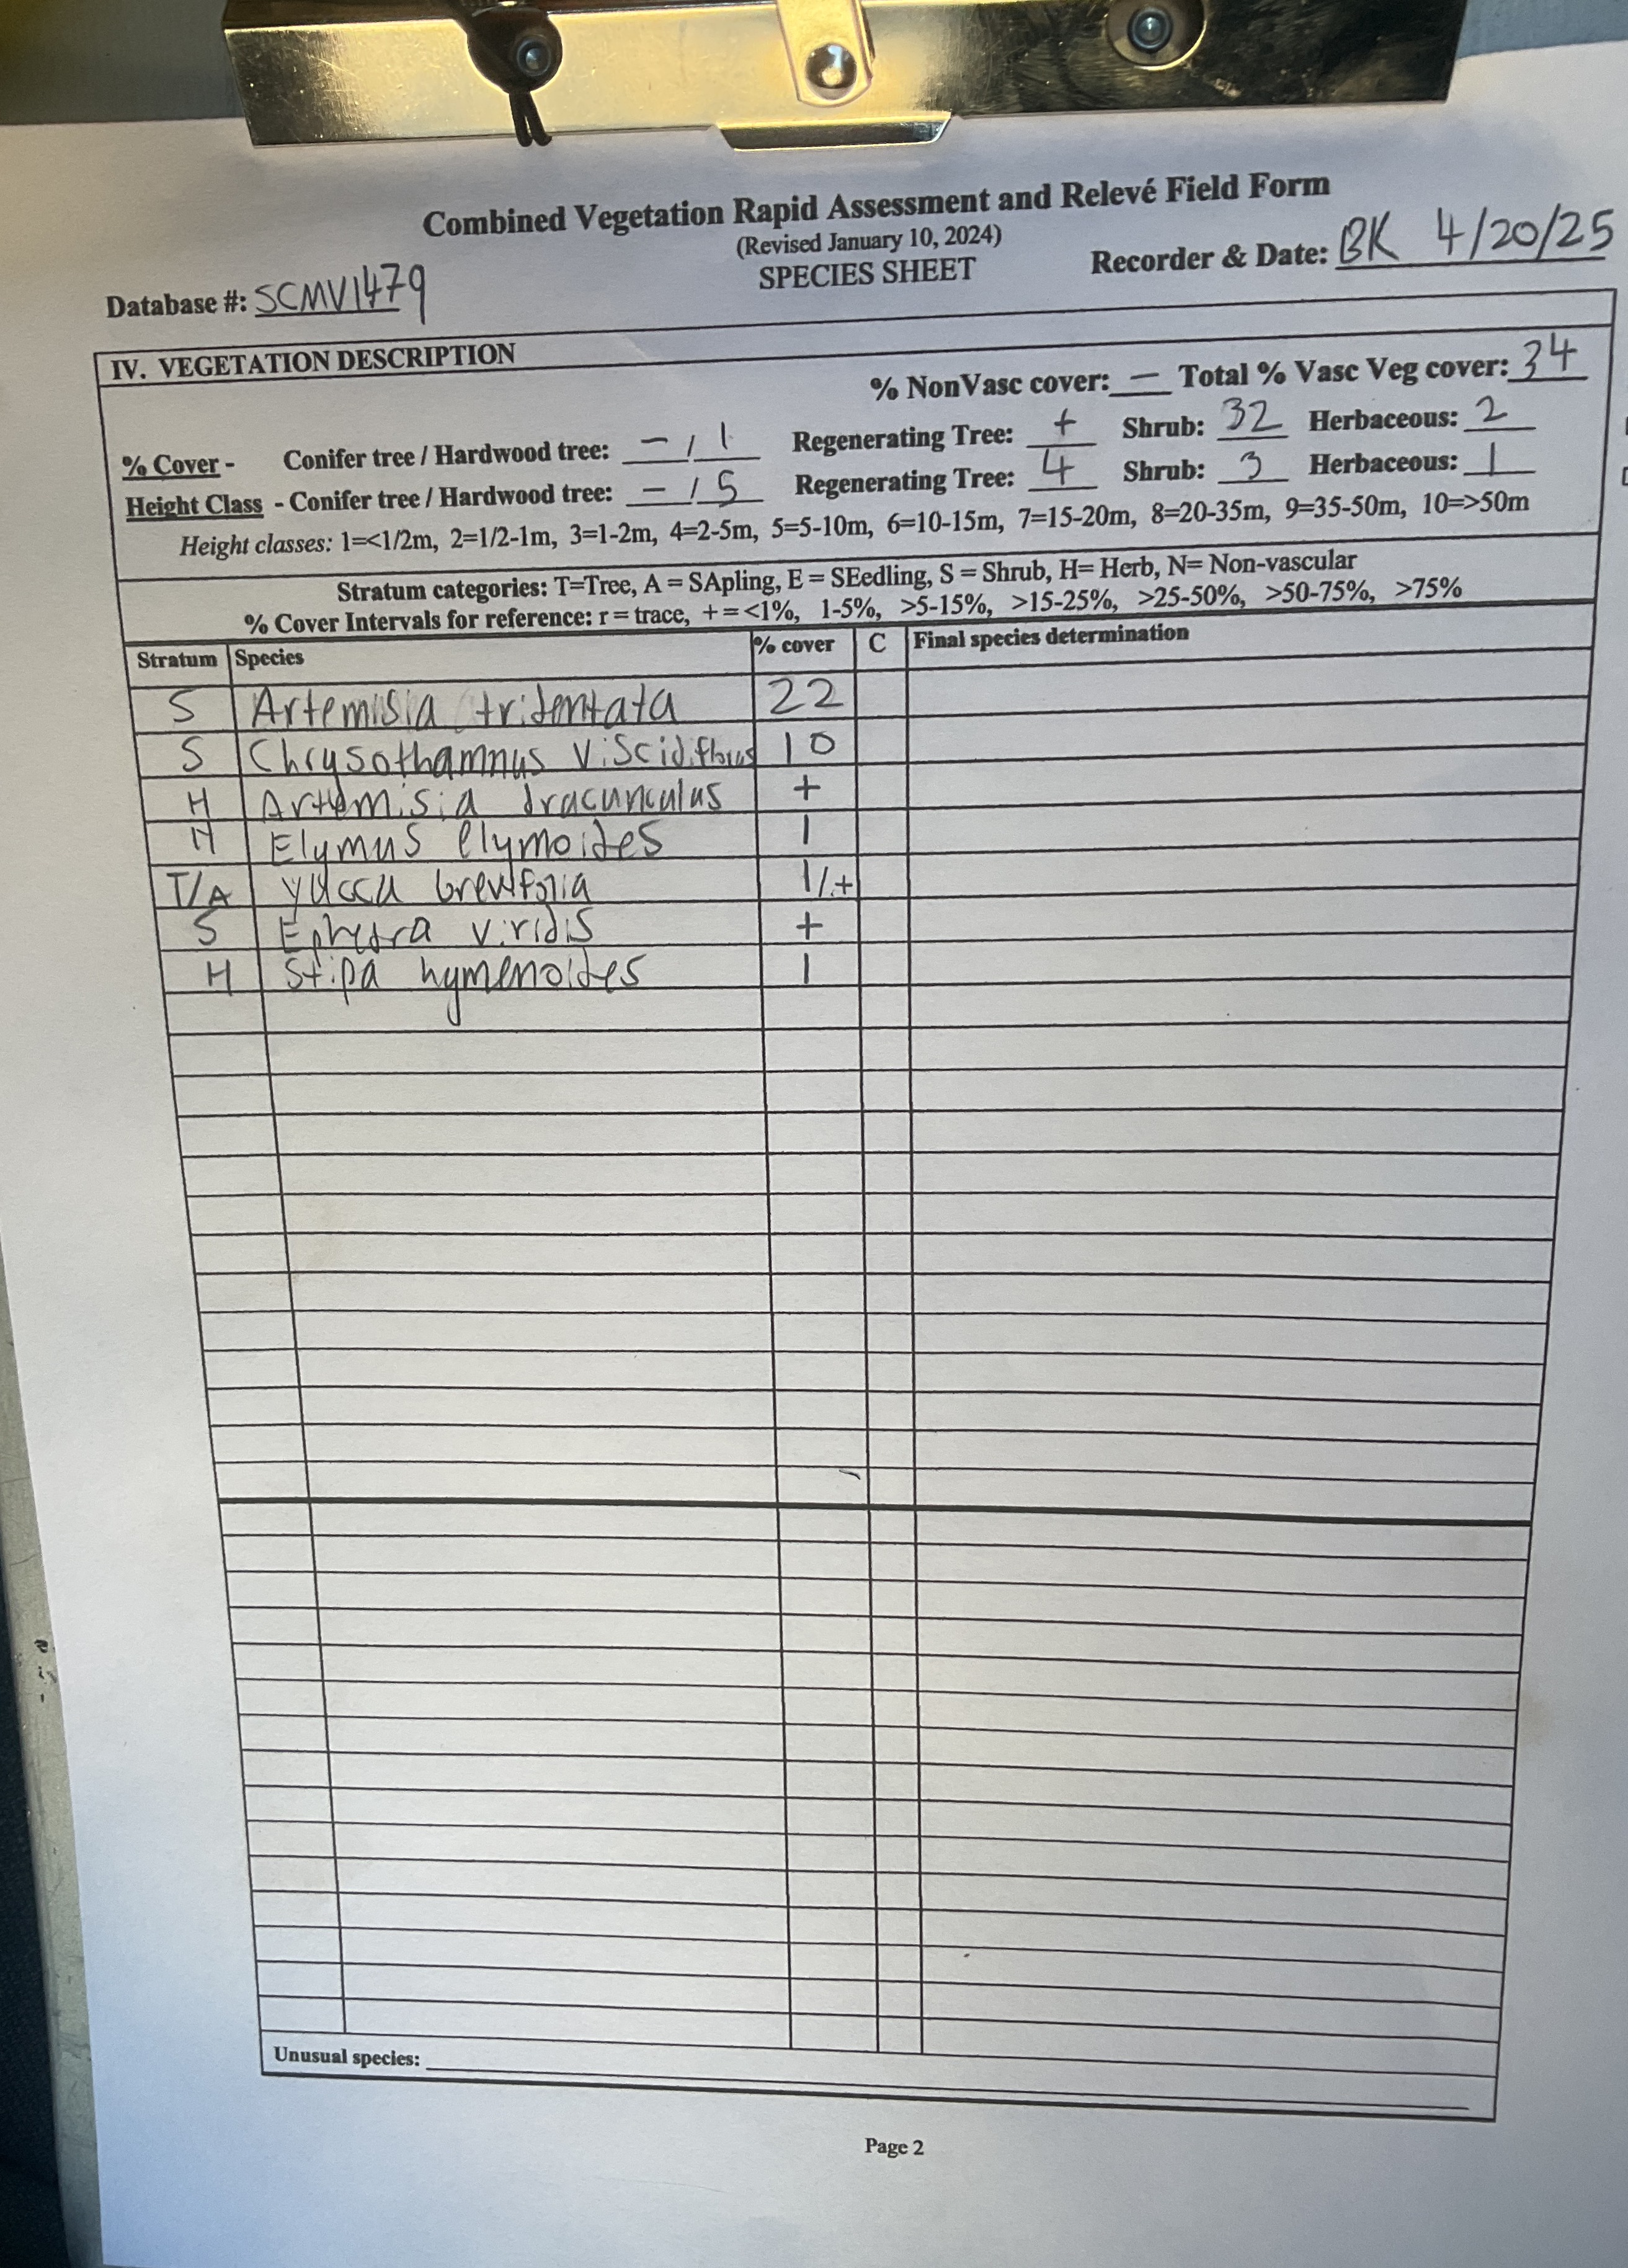 Combined Vegetation Rapid Assessment and Relevé Field Form
(Revised January 10, 2024)
SPECIES SHEET
Database #: SCMV1479
Recorder & Date: BK 4/20/25
IV. VEGETATION DESCRIPTION
% NonVasc cover: — Total % Vasc Veg cover: 34
% Cover - Conifer tree / Hardwood tree: — / 1 Regenerating Tree: + Shrub: 32 Herbaceous: 2
Height Class - Conifer tree / Hardwood tree: — / 5 Regenerating Tree: 4 Shrub: 3 Herbaceous: 1
Height classes: 1=<1/2m, 2=1/2-1m, 3=1-2m, 4=2-5m, 5=5-10m, 6=10-15m, 7=15-20m, 8=20-35m, 9=35-50m, 10=>50m
Stratum categories: T=Tree, A = SApling, E = SEedling, S = Shrub, H= Herb, N= Non-vascular
% Cover Intervals for reference: r = trace, + = <1%, 1-5%, >5-15%, >15-25%, >25-50%, >50-75%, >75%
Stratum Species % cover C Final species determination
S Artemisia tridentata 22
S Chrysothamnus viscidiflorus 10
H Artemisia dracunculus +
H Elymus elymoides 1
T/A yucca brevifolia 1/+
S Ephedra viridis +
H Stipa hymenoides 1
Unusual species:
Page 2